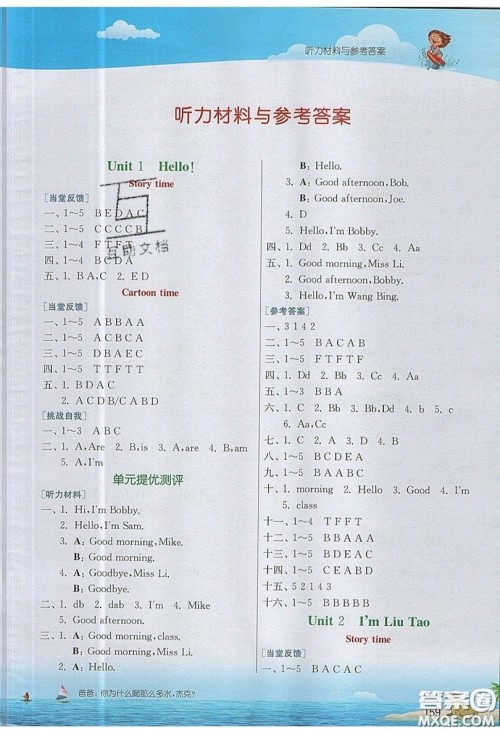 听力材料与参考答案
听力材料与参考答案
Unit 1 Hello!
Story time
[当堂反馈]
一、1~5 BEDAC
二、1~5 CCCCB
三、1~4 FTFT
四、1~4 BDAC
五、1. B,C 2. ED
Cartoon time
[当堂反馈]
一、1~5 ABBAA
二、1~5 ACBCA
三、1~5 DBAEC
四、1~5 TTFTT
五、1. BDAC
2. ACDB/CABD
[挑战自我]
一、1~3 ABC
二、1. A,Are 2. B,is 3. A,are 4. B,am
5. A,I'm
单元提优测评
[听力材料]
一、1. Hi,I'm Bobby.
2. Hello,I'm Sam.
3. A: Good morning,Mike.
B: Good morning.
4. A: Goodbye,Miss Li.
B: Goodbye.
二、1. db 2. dab 3. I'm 4. Mike
5. Good afternoon.
三、1. A: Good morning,class.
B: Good morning,Miss Li.
2. A: Hello.
B: Hello.
3. A: Good afternoon,Bob.
B: Good afternoon,Joe.
4. D
5. Hello,I'm Bobby.
四、1. Dd 2. Bb 3. Cc 4. Dd
五、1. Good morning,Miss Li.
2. Good afternoon.
3. Hello,I'm Wang Bing.
[参考答案]
一、3142
二、1~5 BACAB
三、1~5 FTFTF
四、1. Dd 2. Bb 3. Cc 4. Dd
五、1~3 BBA
六、1. C 2. bD 3. BbDd 4. bc
5. Cc 6. Aa,Cc
七、1. C 2. B 3. D 4. A
八、1~5 BCDEA
九、1~5 BAABC
十、1. morning 2. Hello 3. I'm 4. Hi
5. class 6. Good
十一、1~4 TFFT
十二、1~5 FTTTF
十三、1~5 BDEAC
十四、1~5 CEADB
十五、52143
十六、1~5 BBBBB
Unit 2 I'm Liu Tao
Story time
[当堂反馈]
爸爸：你为什么喝那么多水,杰克?
159
互助文档
答案圈
MXQE.COM